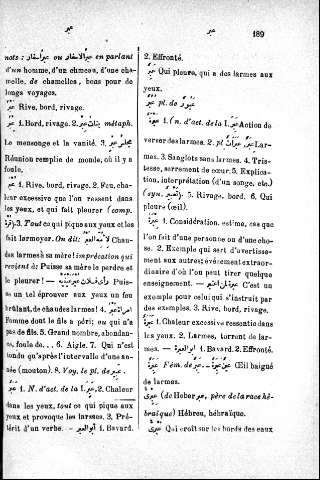 عبر
عبر
189
nots: عبر أسفار ou عبر الاسفار en parlant
d'un homme, d'un chameau, d'une cha-
melle, de chamelles, bons pour de
longs voyages.
عبر Rive, bord, rivage.
عبر 1. Bord, rivage. 2. بنات عبر métaph.
Le mensonge et la vanité. 3. مجلس عبر
Réunion remplie de monde, où il y a
foule.
عبر 1. Rive, bord, rivage. 2. Feu, cha-
leur excessive que l'on ressent dans
les yeux, et qui fait pleurer (comp.
3. Tout ce qui pique aux yeux et les
fait larmoyer. On dit: لأمه العبر Chau-
des larmes à sa mère! imprécation qui
revient à: Puisse sa mère le perdre et
le pleurer! — رأى فلان عبر عينيه Puis-
se un tel éprouver aux yeux un feu
brûlant, de chaudes larmes! 4. امرأة عبر
Femme dont le fils a péri; ou qui n'a
pas de fils. 5. Grand nombre, abondan-
ce, foule de... 6. Aigle. 7. Qui n'est
tondu qu'après l'intervalle d'une an-
née (mouton). 8. Voy. le pl. de عبير.
عبر 1. N. d'act. de la I. عبر 2. Chaleur
dans les yeux, tout ce qui pique aux
yeux et provoque les larmes. 3. Pré-
térit d'un verbe. — أبو العبر 1. Bavard.
2. Effronté.
عبر Qui pleure, qui a des larmes aux
yeux.
عبر pl. de عبور
عبرة 1. (n. d'act. de la I. عبر Action de
verser des larmes. 2. pl. عبرات Lar-
mes. 3. Sanglots sans larmes. 4. Tris-
tesse, serrement de cœur. 5. Explica-
tion, interprétation (d'un songe, etc.)
(syn. تعبير). 5. Rivage, bord. 6. Qui
pleure (œil).
عبرة 1. Considération, estime, cas que
l'on fait d'une personne ou d'une cho-
se. 2. Exemple qui sert d'avertisse-
ment aux autres; événement extraor-
dinaire d'où l'on peut tirer quelque
enseignement. — C'est un
exemple pour celui qui s'instruit par
des exemples. 3. Rive, bord, rivage.
عبرة 1. Chaleur excessive ressentie dans
les yeux. 2. Larmes, torrent de lar-
mes. — أبو العبرة 1. Bavard. 2. Effronté.
عبرة Fém. de عبر. — عين عبرة Œil baigné
de larmes.
عبري (de Heber عبر, père de la race hé-
braïque) Hébreu, hébraïque.
عبري Qui croît sur les bords des eaux